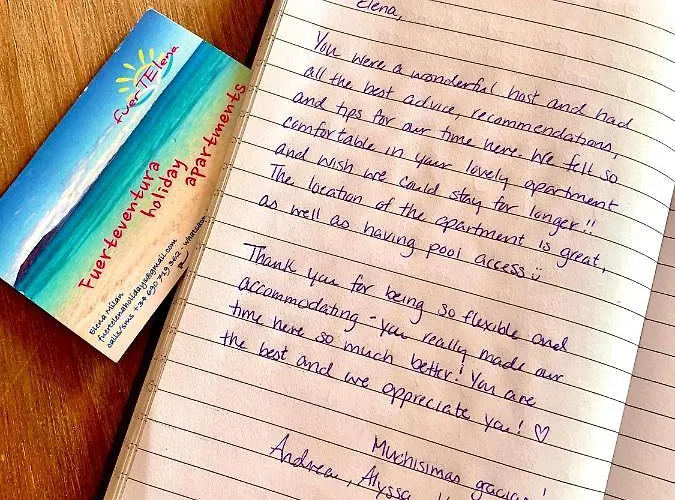 fuerTElena
Fuerteventura
holiday
apartments
Elena Milan
fuertelenaholidays@gmail.com
calls/sms +34 690 719 362 - whatsapp
Elena,
You were a wonderful host and had
all the best advice, recommendations,
and tips for our time here. We felt so
comfortable in your lovely apartment
and wish we could stay for longer!!
The location of the apartment is great,
as well as having pool access
Thank you for being so flexible and
accommodating - you really made our
time here so much better! You are
the best and we appreciate you! ♡
Muchisimas gracias!
Andrea, Alyssa